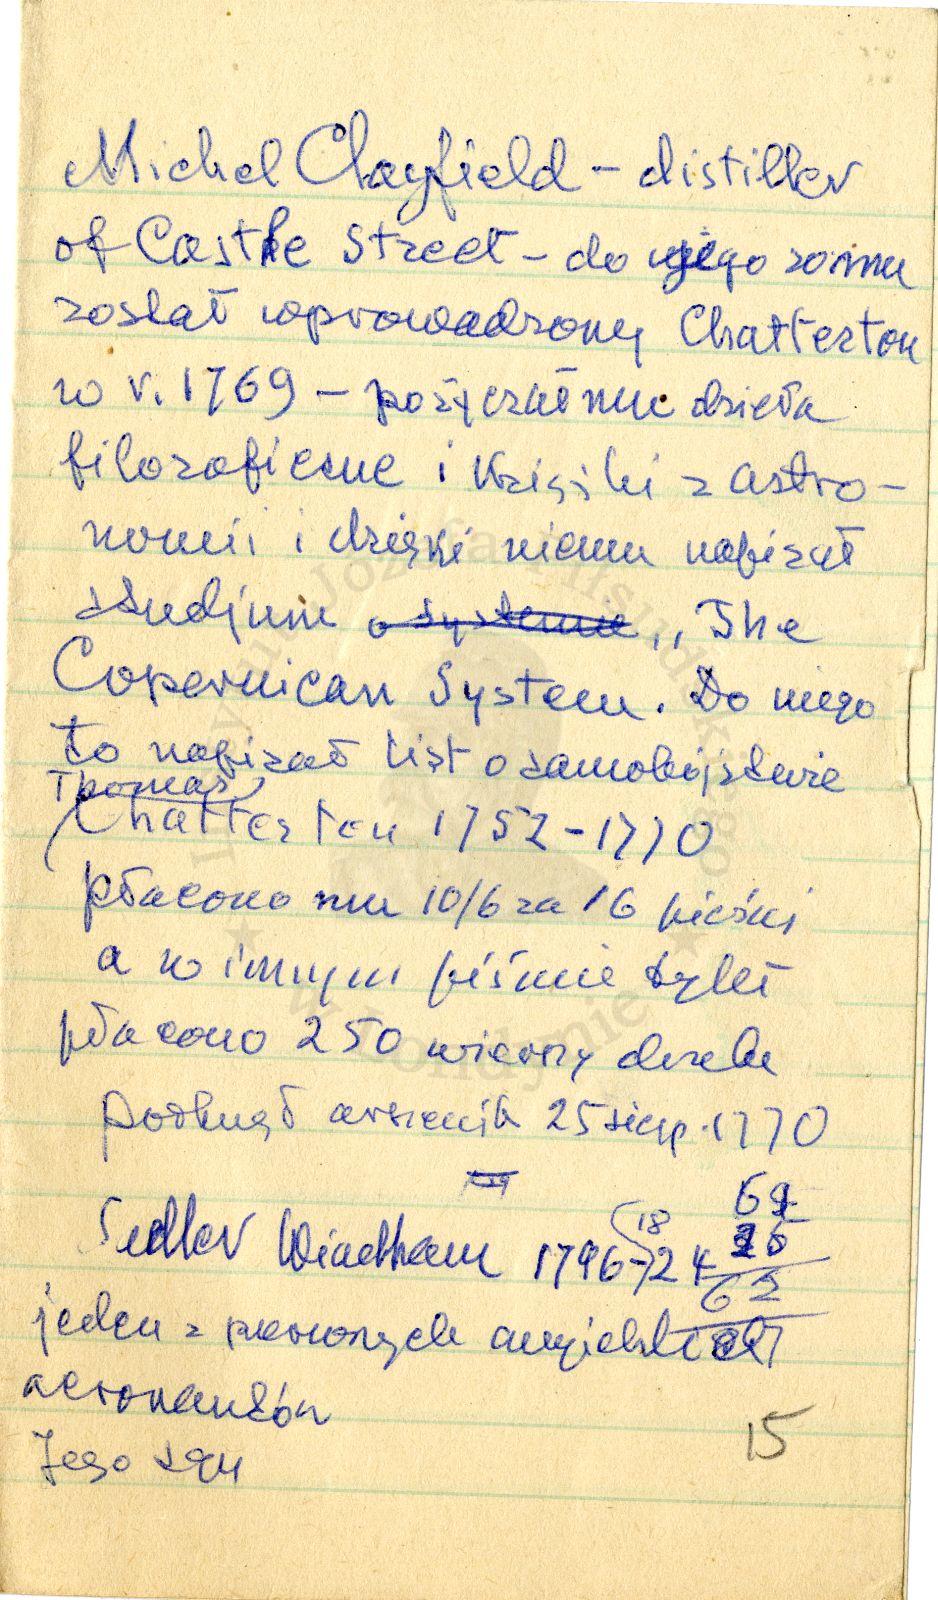 Michel Clayfield – distiller
of Castle Street – do jego domu
został wprowadzony Chatterton
w r. 1769 – pożyczał mu dzieła
filozoficzne i książki z astro-
nomii i dzięki niemu napisał
studjum o systemie „The
Copernican System. Do niego
to napisał list o samobójstwie
Thomas
Chatterton 1752–1770
płacono mu 10/6 za 16 pieśni
a w innym piśmie tyleż
płacono 250 wierszy
Połknął arszenik 25 sierp. 1770
Sedler Windham 1796–1824
jeden z pierwszych angielskich
aeronautów
Jego syn
15
Instytut Józefa Piłsudskiego
w Londynie